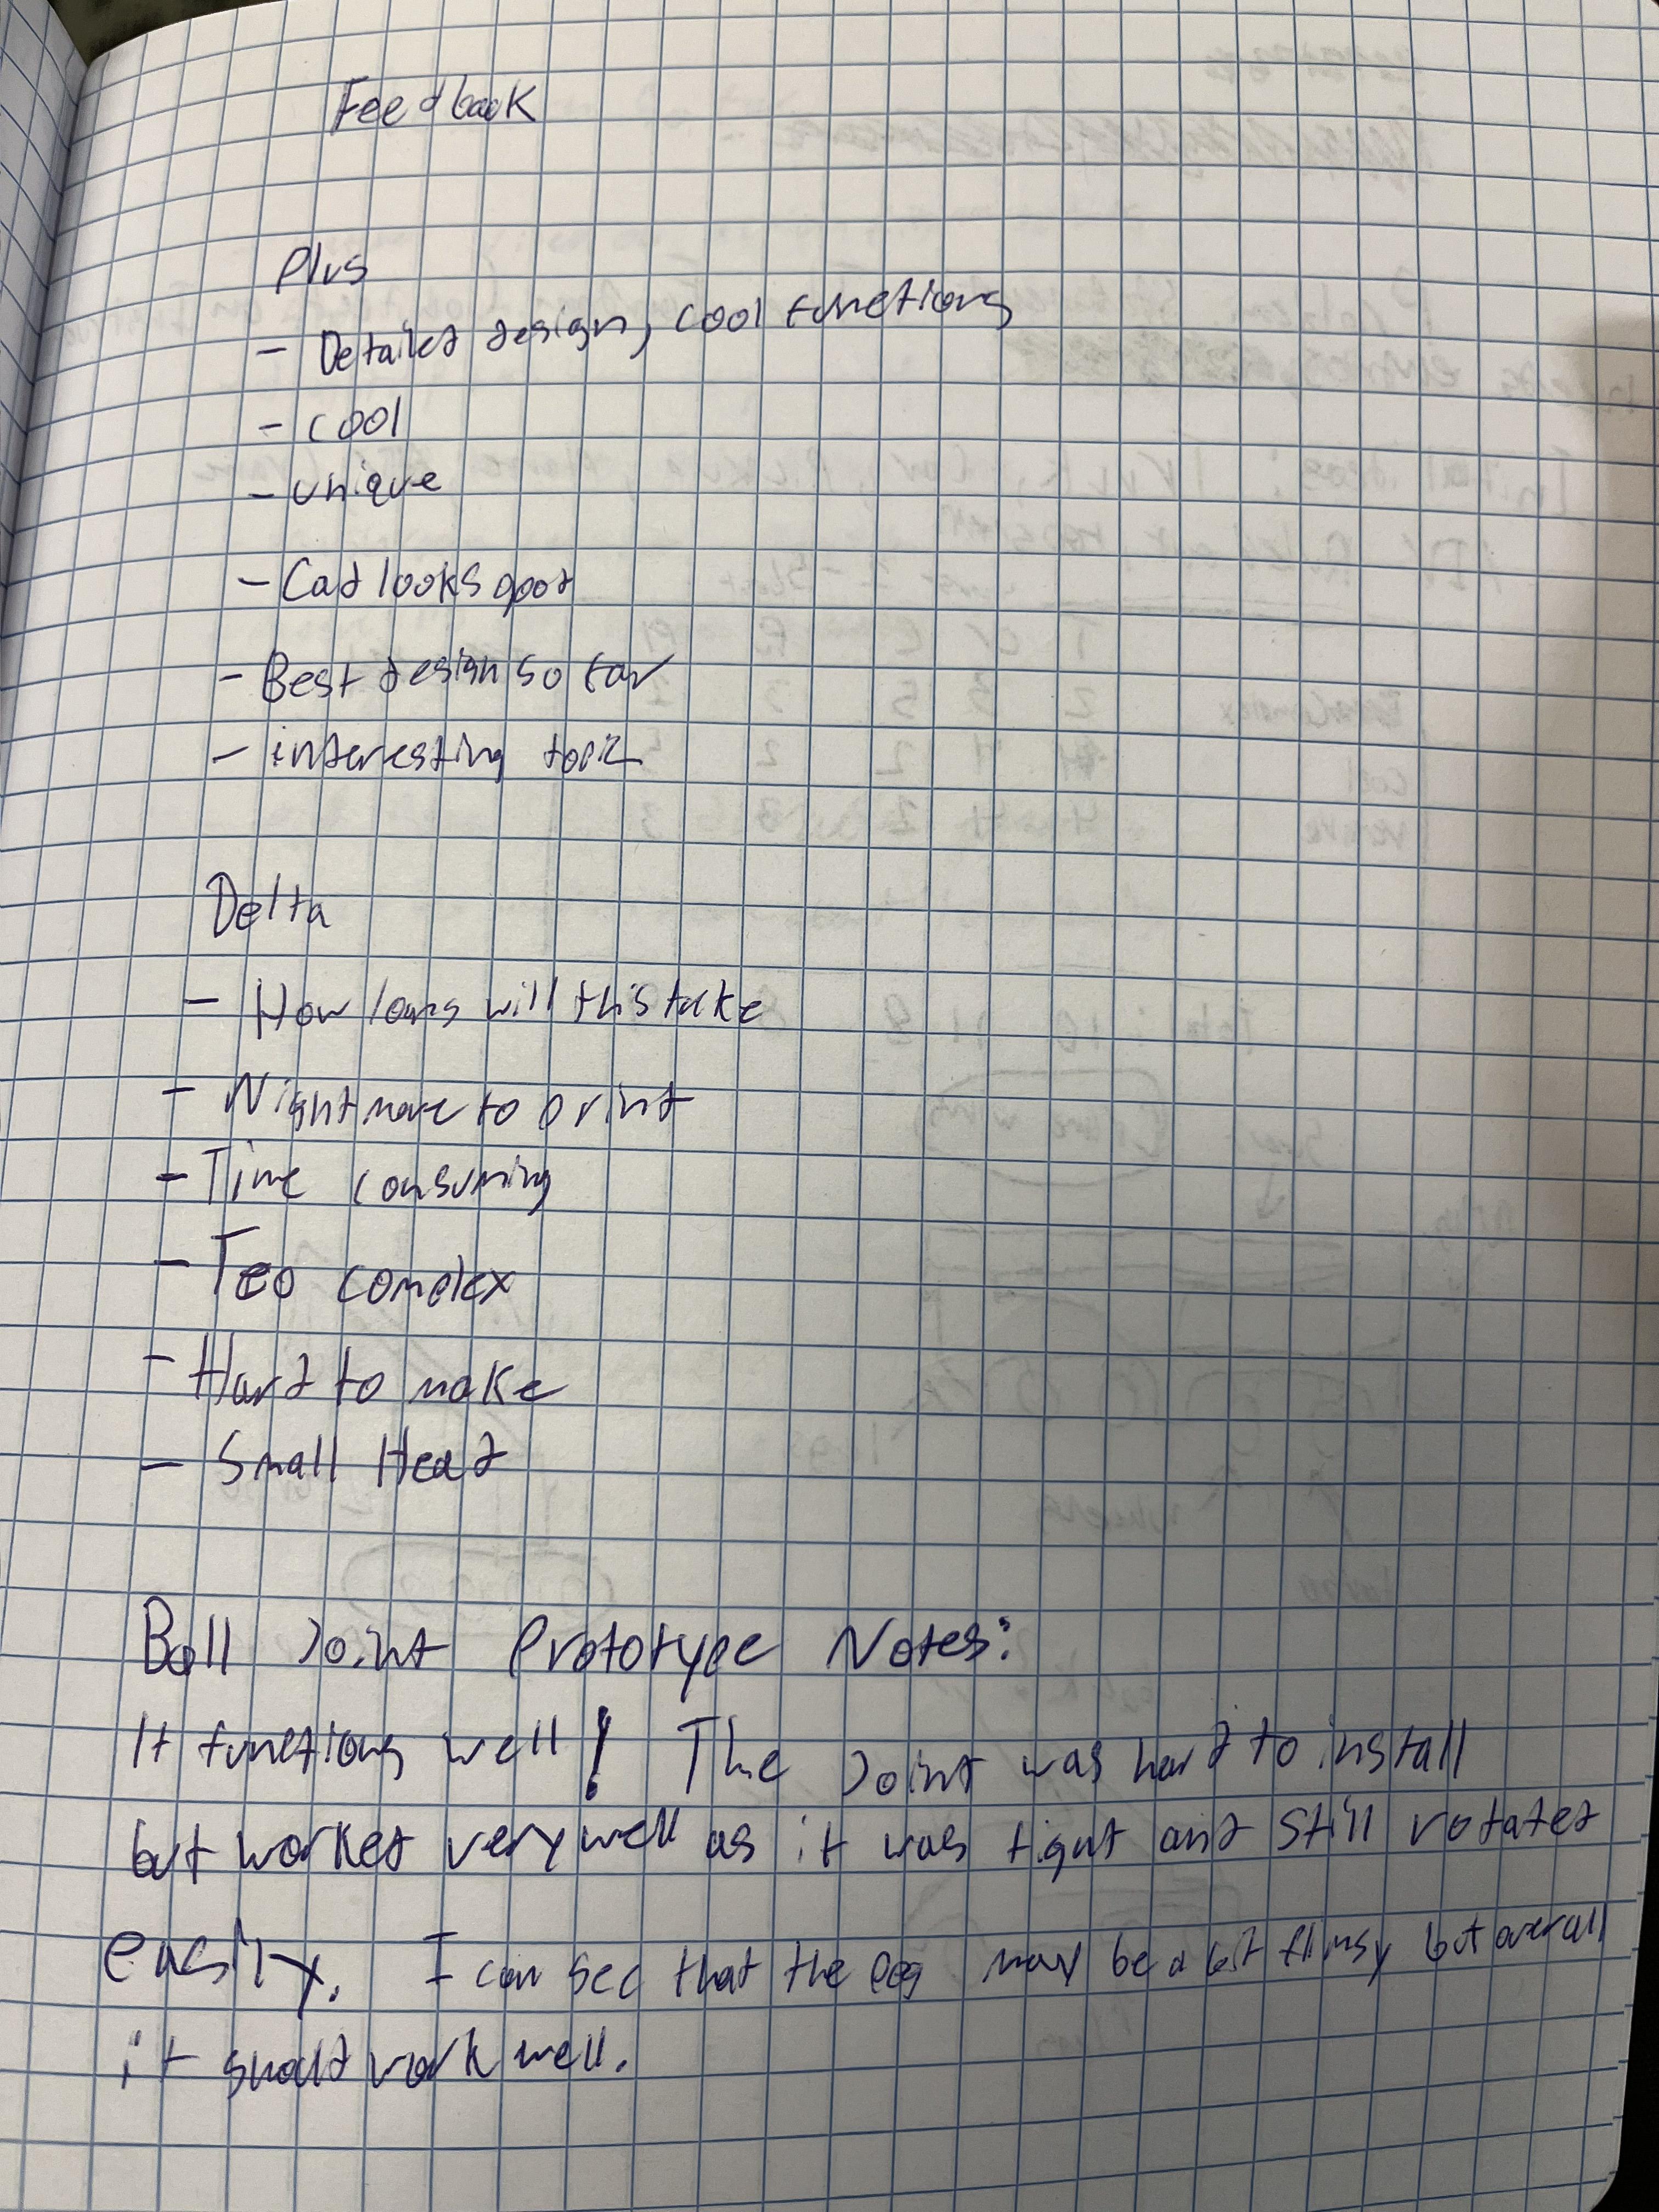 Feedback
Plus
- Detailed design, cool functions
- cool
- unique
- Cad looks good
- Best design so far
- interesting topic
Delta
- How long will this take
- Nightmare to print
- Time consuming
- Too complex
- Hard to make
- Small Head
Ball Joint Prototype Notes:
It functions well! The Joint was hard to install
but worked very well as it was tight and still rotated
easily. I can see that the peg may be a bit flimsy but overall
it should work well.